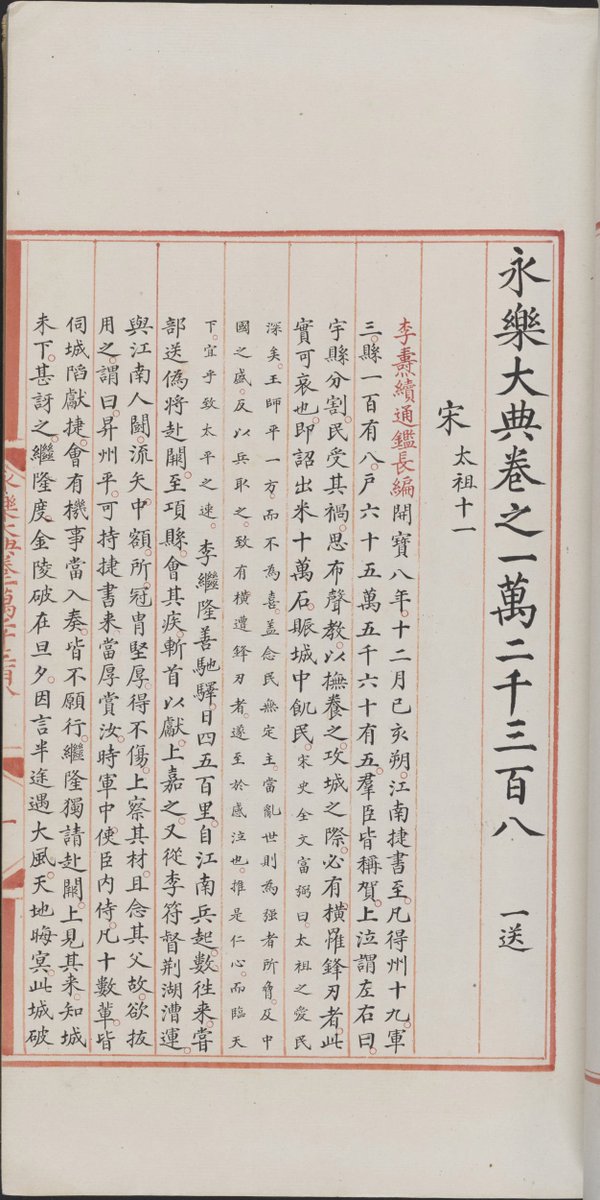 永樂大典卷之一萬二千三百八 一送
宋 太祖十一
李燾續通鑑長編開寶八年。十二月己亥朔。江南捷書至。凡得州十九。軍
三。縣一百有八。戶六十五萬五千六十有五。羣臣皆稱賀。上泣謂左右曰。
宇縣分割。民受其禍。思布聲教。以撫養之。攻城之際。必有橫罹鋒刃者。此
實可哀也。即詔出米十萬石。賑城中飢民。宋史全文富弼曰。太祖之愛民
深矣。王師平一方。而不為喜。蓋念民無定主。當亂世則為强者所脅。及中
國之盛。反以兵取之。致有橫遭鋒刃者。遂至於感泣也。推是仁心。而臨天
下。宜乎致太平之速。李繼隆善馳驛。日四五百里。自江南兵起。數往來。嘗
部送偽將赴闕。至項縣。會其疾。斬首以獻。上嘉之。又從李符督荊湖漕運。
與江南人鬭。流矢中額。所冠冑堅厚。得不傷。上察其材。且念其父故。欲拔
用之。謂曰。昇州平。可持捷書來。當厚賞汝。時軍中。使臣內侍。凡十數輩。皆
伺城陷獻捷。會有機事當入奏。皆不願行。繼隆獨請赴闕。上見其來。知城
未下。甚訝之。繼隆度。金陵破在旦夕。因言半途遇大風。天地晦冥。此城破